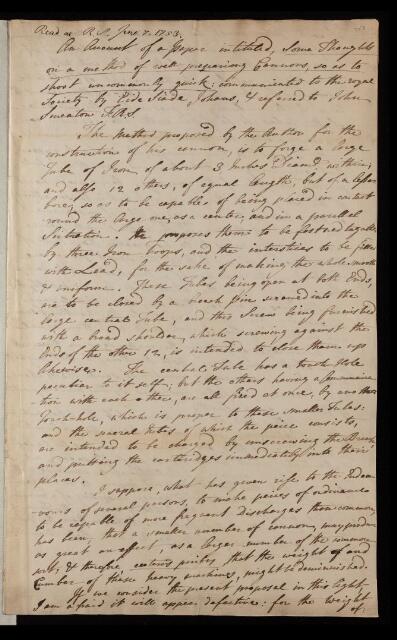 Read at R.S. June 7. 1753.
An Account of a paper intitled, Some Thoughts
on a method of well preparing Cannons, so as to
shoot uncommonly quick; communicated to the royal
Society by Johans, & referred to John
Smeaton F.R.S.
The Method proposed by the Author for the
construction of his cannon, is to forge a large
Tube of Iron, of about 3 Inches Diamr within;
and also 12 others, of equal length, but of a lesser
bore; so as to be capable of being placed in contact
round the large one, as a center, and in a parallel
Situation. He proposes them to be fastned together
by three Iron hoops, and the interstices to be filled
with Lead, for the sake of making the whole smooth
& uniform. These Tubes being open at both Ends,
are to be closed by a breech pin screwed into the
large central Tube, and this Screw being furnished
with a broad shoulder, which screwing against the
Ends of the other 12, is intended to close them up
likewise. The central Tube has a touch hole
peculiar to it self; but the others having a communica
tion with each other, are all fired at once, by another
Touch-hole, which is proper to these smaller Tubes:
and the several Tubes of which the peice consists,
are intended to be charged by unscrewing the Breech
and putting the cartridges immediately into their
places.
I suppose, what has given rise to the Endea-
vours of several persons, to make peices of ordinance
to be capable of more frequent discharges than common,
has been, that a smaller number of cannon, may produce
as great an effect, as a larger number of the common
sort, & therefore that the weight of and
Number of these heavy machines, might be diminished.
If we consider the present proposal in this light
I am afraid it will appear defective: for the weight
of